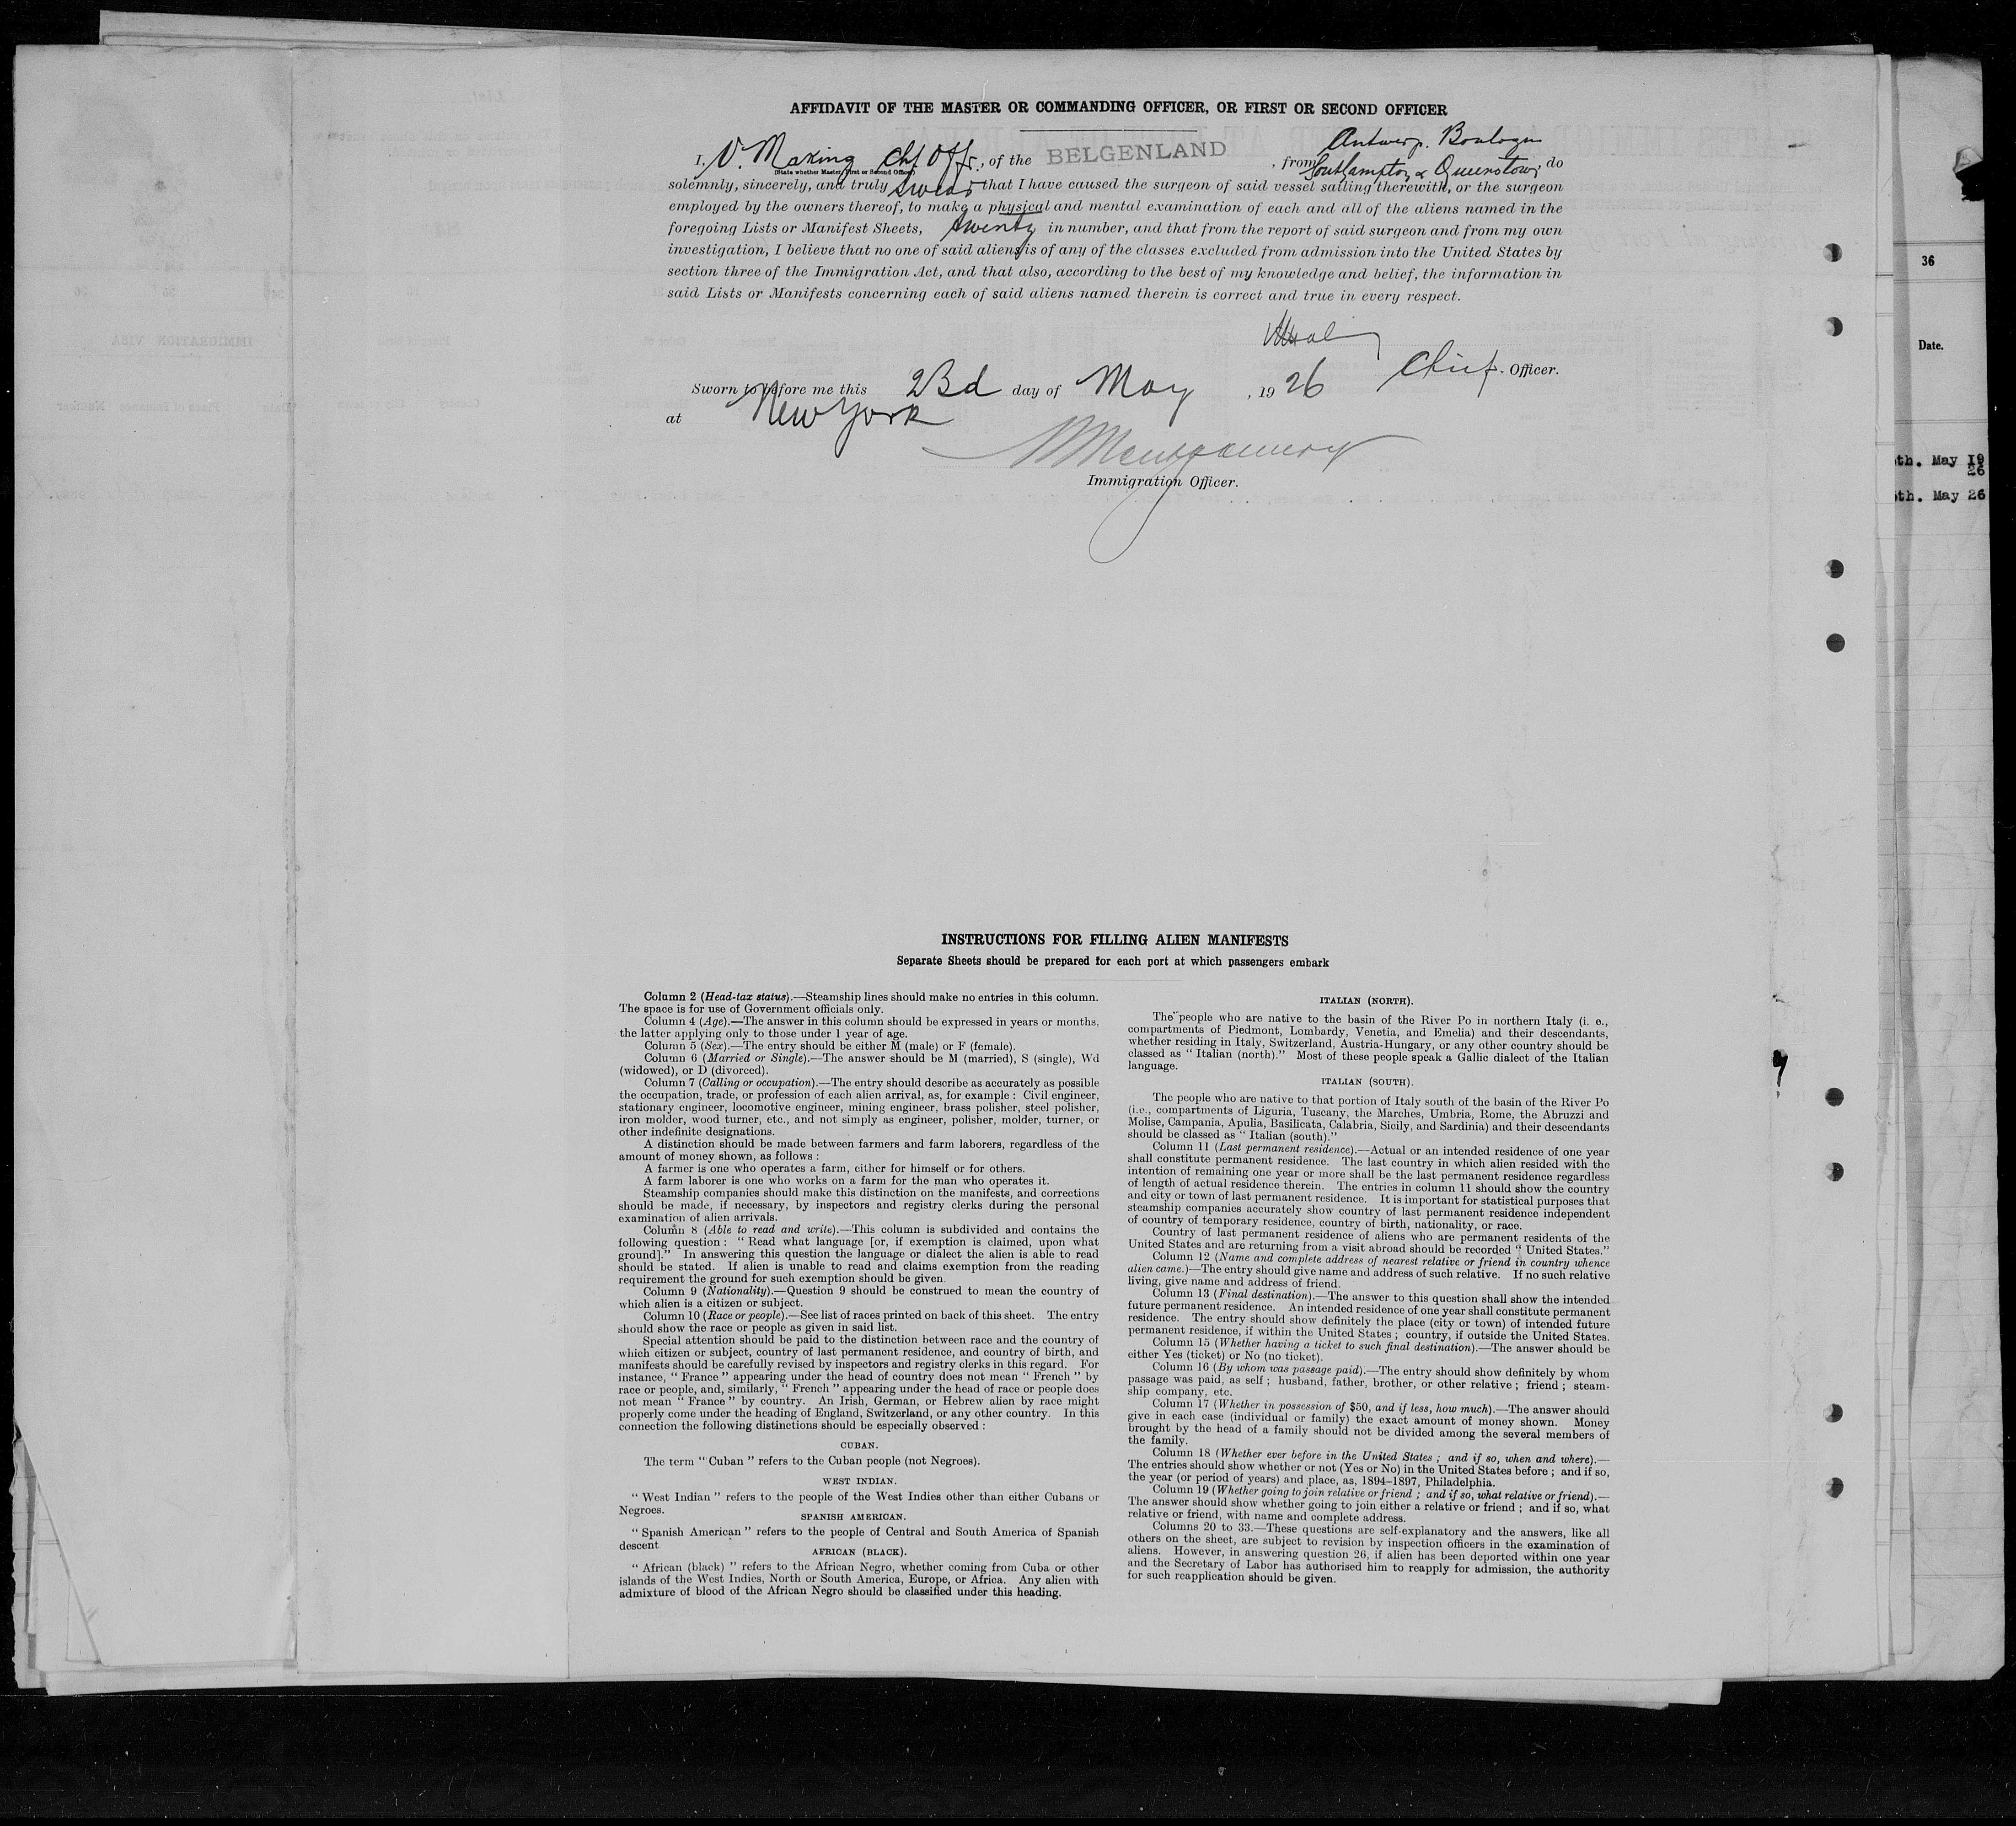 AFFIDAVIT OF THE MASTER OR COMMANDING OFFICER, OR FIRST OR SECOND OFFICER
I, V. Making Chf Offr., of the BELGENLAND, from Antwerp. Boulogne Southampton & Queenstown, do
(State whether Master, First or Second Officer)
solemnly, sincerely, and truly swear that I have caused the surgeon of said vessel sailing therewith, or the surgeon
employed by the owners thereof, to make a physical and mental examination of each and all of the aliens named in the
foregoing Lists or Manifest Sheets, twenty in number, and that from the report of said surgeon and from my own
investigation, I believe that no one of said aliens is of any of the classes excluded from admission into the United States by
section three of the Immigration Act, and that also, according to the best of my knowledge and belief, the information in
said Lists or Manifests concerning each of said aliens named therein is correct and true in every respect.
Chief. Officer.
Sworn to before me this 23d day of May, 1926
at New York
Montgomery
Immigration Officer.
36
Date.
th. May 19
26
th. May 26
INSTRUCTIONS FOR FILLING ALIEN MANIFESTS
Separate Sheets should be prepared for each port at which passengers embark
Column 2 (Head-tax status).—Steamship lines should make no entries in this column.
The space is for use of Government officials only.
Column 4 (Age).—The answer in this column should be expressed in years or months,
the latter applying only to those under 1 year of age.
Column 5 (Sex).—The entry should be either M (male) or F (female).
Column 6 (Married or Single).—The answer should be M (married), S (single), Wd
(widowed), or D (divorced).
Column 7 (Calling or occupation).—The entry should describe as accurately as possible
the occupation, trade, or profession of each alien arrival, as, for example : Civil engineer,
stationary engineer, locomotive engineer, mining engineer, brass polisher, steel polisher,
iron molder, wood turner, etc., and not simply as engineer, polisher, molder, turner, or
other indefinite designations.
A distinction should be made between farmers and farm laborers, regardless of the
amount of money shown, as follows :
A farmer is one who operates a farm, either for himself or for others.
A farm laborer is one who works on a farm for the man who operates it.
Steamship companies should make this distinction on the manifests, and corrections
should be made, if necessary, by inspectors and registry clerks during the personal
examination of alien arrivals.
Column 8 (Able to read and write).—This column is subdivided and contains the
following question : " Read what language [or, if exemption is claimed, upon what
ground]." In answering this question the language or dialect the alien is able to read
should be stated. If alien is unable to read and claims exemption from the reading
requirement the ground for such exemption should be given.
Column 9 (Nationality).—Question 9 should be construed to mean the country of
which alien is a citizen or subject.
Column 10 (Race or people).—See list of races printed on back of this sheet. The entry
should show the race or people as given in said list.
Special attention should be paid to the distinction between race and the country of
which citizen or subject, country of last permanent residence, and country of birth, and
manifests should be carefully revised by inspectors and registry clerks in this regard. For
instance, " France " appearing under the head of country does not mean " French " by
race or people, and, similarly, " French " appearing under the head of race or people does
not mean " France " by country. An Irish, German, or Hebrew alien by race might
properly come under the heading of England, Switzerland, or any other country. In this
connection the following distinctions should be especially observed :
CUBAN.
The term " Cuban " refers to the Cuban people (not Negroes).
WEST INDIAN.
" West Indian " refers to the people of the West Indies other than either Cubans or
Negroes.
SPANISH AMERICAN.
" Spanish American " refers to the people of Central and South America of Spanish
descent
AFRICAN (BLACK).
" African (black) " refers to the African Negro, whether coming from Cuba or other
islands of the West Indies, North or South America, Europe, or Africa. Any alien with
admixture of blood of the African Negro should be classified under this heading.
ITALIAN (NORTH).
The people who are native to the basin of the River Po in northern Italy (i. e.,
compartments of Piedmont, Lombardy, Venetia, and Emelia) and their descendants,
whether residing in Italy, Switzerland, Austria-Hungary, or any other country should be
classed as " Italian (north)." Most of these people speak a Gallic dialect of the Italian
language.
ITALIAN (SOUTH).
The people who are native to that portion of Italy south of the basin of the River Po
(i.e., compartments of Liguria, Tuscany, the Marches, Umbria, Rome, the Abruzzi and
Molise, Campania, Apulia, Basilicata, Calabria, Sicily, and Sardinia) and their descendants
should be classed as " Italian (south)."
Column 11 (Last permanent residence).—Actual or an intended residence of one year
shall constitute permanent residence. The last country in which alien resided with the
intention of remaining one year or more shall be the last permanent residence regardless
of length of actual residence therein. The entries in column 11 should show the country
and city or town of last permanent residence. It is important for statistical purposes that
steamship companies accurately show country of last permanent residence independent
of country of temporary residence, country of birth, nationality, or race.
Country of last permanent residence of aliens who are permanent residents of the
United States and are returning from a visit abroad should be recorded " United States."
Column 12 (Name and complete address of nearest relative or friend in country whence
alien came.)—The entry should give name and address of such relative. If no such relative
living, give name and address of friend.
Column 13 (Final destination).—The answer to this question shall show the intended
future permanent residence. An intended residence of one year shall constitute permanent
residence. The entry should show definitely the place (city or town) of intended future
permanent residence, if within the United States ; country, if outside the United States.
Column 15 (Whether having a ticket to such final destination).—The answer should be
either Yes (ticket) or No (no ticket).
Column 16 (By whom was passage paid).—The entry should show definitely by whom
passage was paid, as self ; husband, father, brother, or other relative ; friend ; steam-
ship company, etc.
Column 17 (Whether in possession of $50, and if less, how much).—The answer should
give in each case (individual or family) the exact amount of money shown. Money
brought by the head of a family should not be divided among the several members of
the family.
Column 18 (Whether ever before in the United States ; and if so, when and where).—
The entries should show whether or not (Yes or No) in the United States before ; and if so,
the year (or period of years) and place, as, 1894-1897, Philadelphia.
Column 19 (Whether going to join relative or friend ; and if so, what relative or friend).—
The answer should show whether going to join either a relative or friend ; and if so, what
relative or friend, with name and complete address.
Columns 20 to 33.—These questions are self-explanatory and the answers, like all
others on the sheet, are subject to revision by inspection officers in the examination of
aliens. However, in answering question 26, if alien has been deported within one year
and the Secretary of Labor has authorised him to reapply for admission, the authority
for such reapplication should be given.